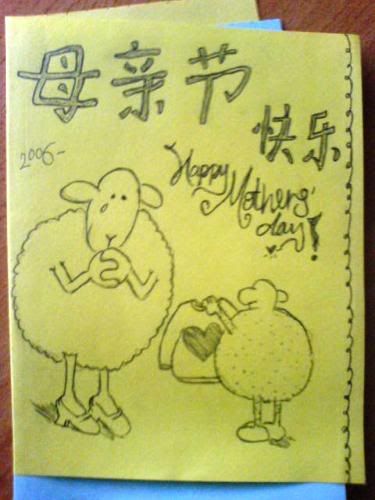 母亲节
快乐
2006-
Happy
Mothers'
day!